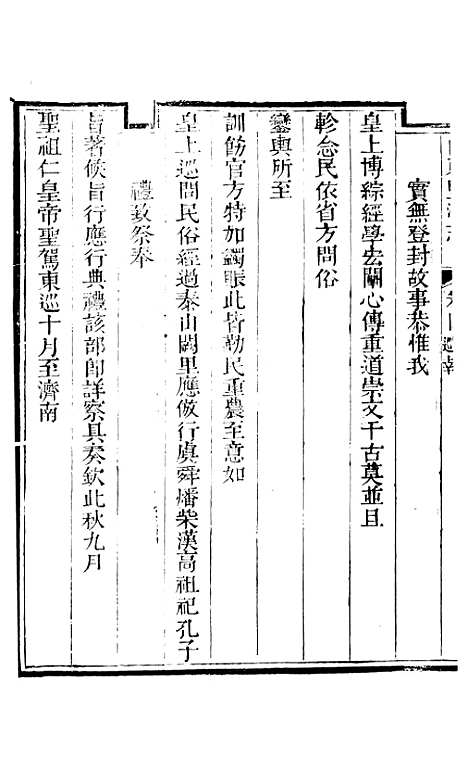 實無登封故事恭惟我
皇上博綜經學玄闡心傳重道崇文千古莫並且
軫念民依省方問俗
鑾輿所至
訓飭官方特加蠲賑此皆勤民重農至意如
皇上巡問民俗經過泰山闕里應倣行虞舜燔柴漢高祖祀孔子
禮致祭奉
旨著候旨行應行典禮該部卽詳察具奏欽此秋九月
聖祖仁皇帝聖駕東巡十月至濟南